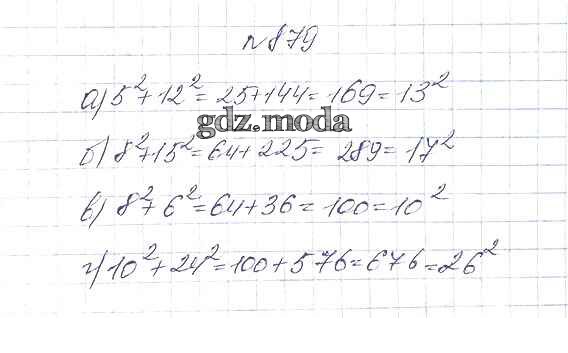 №879
а) 5²+12²=25+144=169=13²
gdz.moda
б) 8²+15²=64+225=289=17²
в) 8²+6²=64+36=100=10²
г) 10²+24²=100+576=676=26²